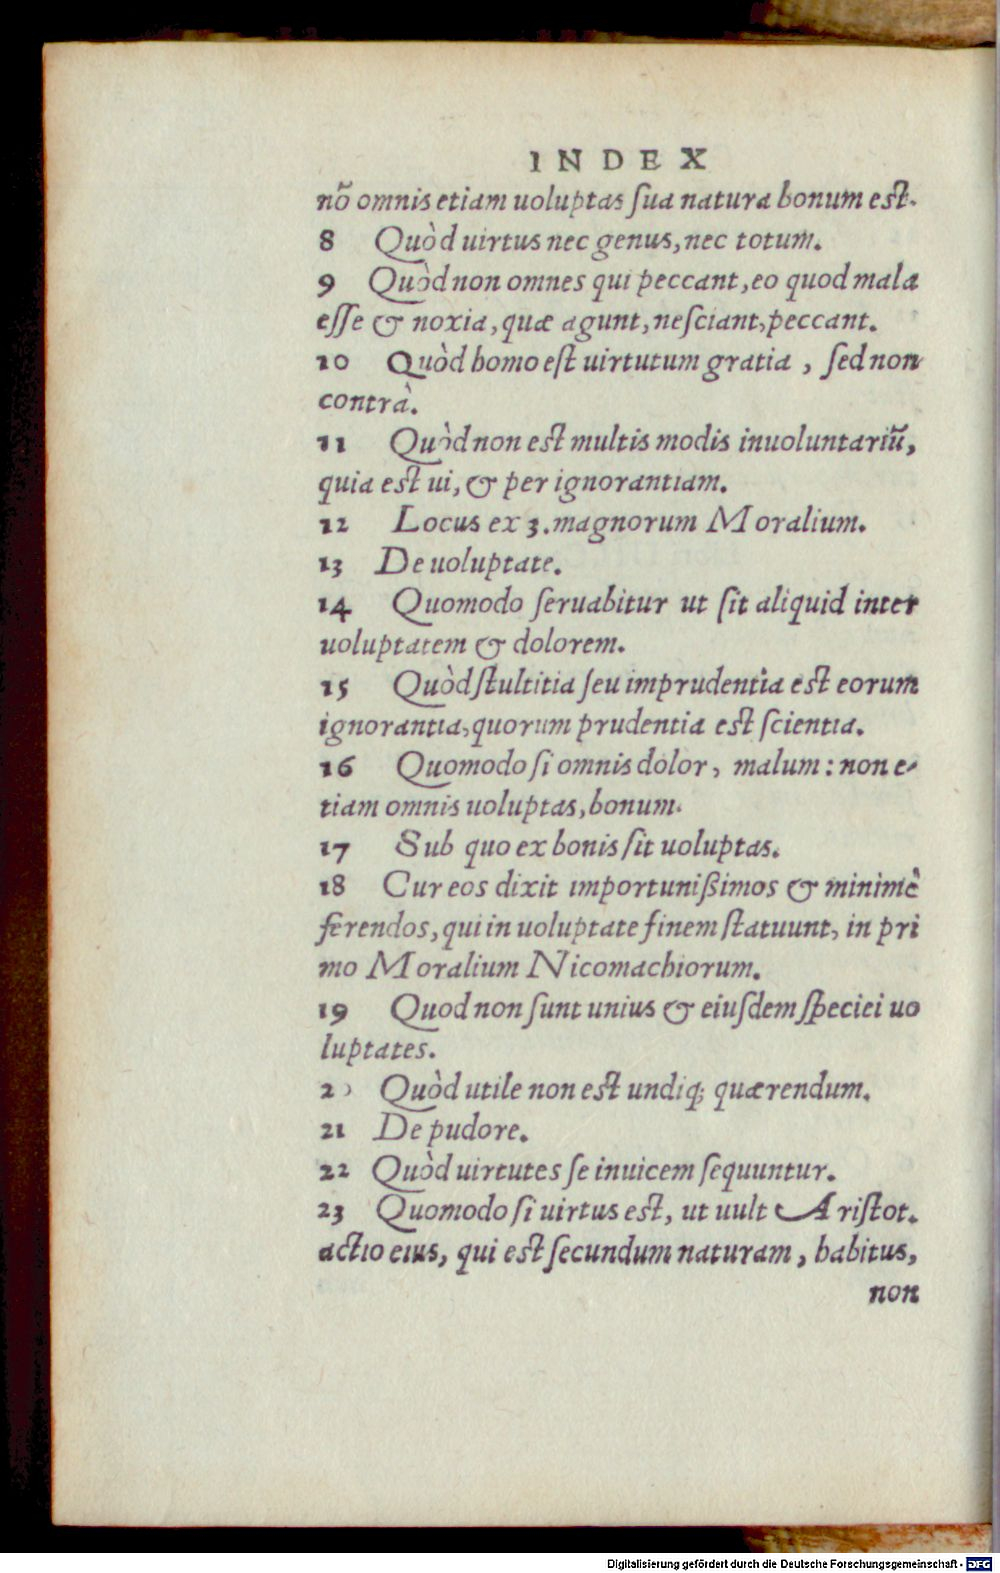 INDEX
nõ omnis etiam uoluptas sua natura bonum est.
8 Quòd uirtus nec genus, nec totum.
9 Quòd non omnes qui peccant, eo quod mala
esse & noxia, quæ agunt, nesciant, peccant.
10 Quòd homo est uirtutum gratia , sed non
contrà.
11 Quòd non est multis modis inuoluntariũ,
quia est ui, & per ignorantiam.
12 Locus ex 3. magnorum Moralium.
13 De uoluptate.
14 Quomodo seruabitur ut sit aliquid inter
uoluptatem & dolorem.
15 Quòd stultitia seu imprudentia est eorum
ignorantia, quorum prudentia est scientia.
16 Quomodo si omnis dolor, malum: non e-
tiam omnis uoluptas, bonum.
17 Sub quo ex bonis sit uoluptas.
18 Cur eos dixit importunißimos & minimè
ferendos, qui in uoluptate finem statuunt, in pri
mo Moralium Nicomachiorum.
19 Quod non sunt unius & eiusdem speciei uo
luptates.
20 Quòd utile non est undiq; quærendum.
21 De pudore.
22 Quòd uirtutes se inuicem sequuntur.
23 Quomodo si uirtus est, ut uult Aristot.
actio eius, qui est secundum naturam, habitus,
non
Digitalisierung gefördert durch die Deutsche Forschungsgemeinschaft - DFG